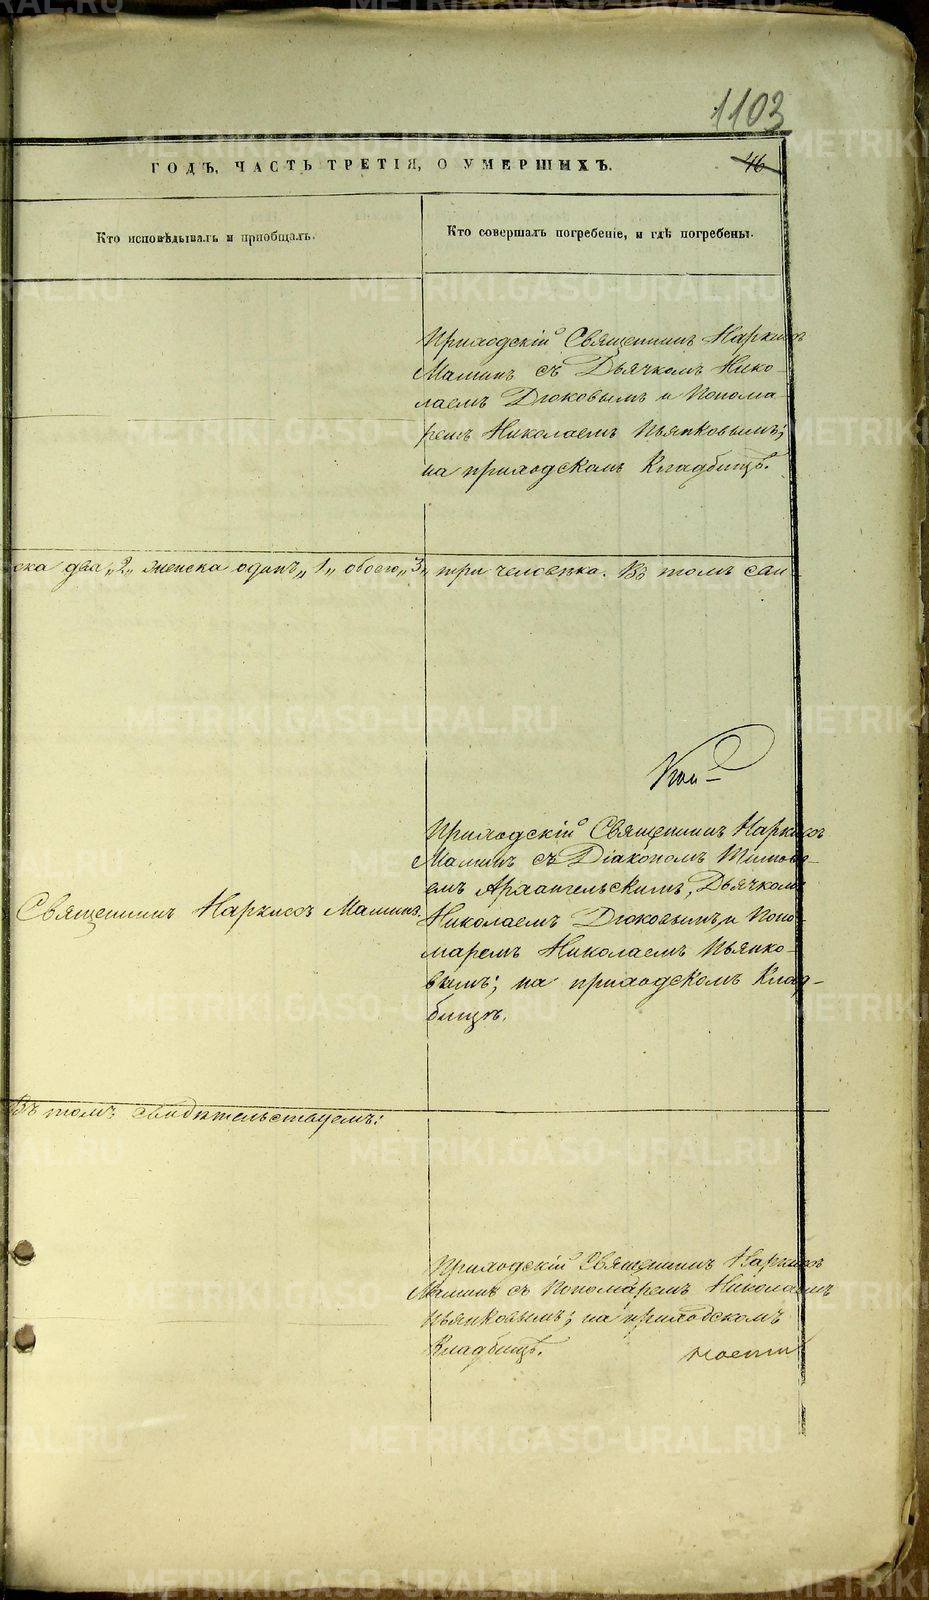 1103
ГОДЪ, ЧАСТЬ ТРЕТІЯ, О УМЕРШИХЪ.
46
Кто исповѣдывалъ и пріобщалъ.
Кто совершалъ погребеніе, и гдѣ погребены.
Приходскій Священникъ Наркисъ
Маминъ съ Дьячкомъ Нико-
лаемъ Дюковымъ и Понома-
ремъ Николаемъ Пьянковымъ;
на приходскомъ Кладбищѣ.
ска два „2„ женска одинъ „1„ обоего „3„ три человѣка. Въ томъ сви-
Приходскій Священникъ Наркисъ
Маминъ съ Діакономъ Тимоѳе-
емъ Архангельскимъ, Дьячкомъ
Священникъ Наркисъ Маминъ.
Николаемъ Дюковымъ и Поно-
маремъ Николаемъ Пьянко-
вымъ; на приходскомъ Клад-
бищѣ.
Въ томъ свидѣтельствуемъ:
Приходскій Священникъ Наркисъ
Маминъ съ Пономаремъ Николаемъ
Пьянковымъ; на приходскомъ
Кладбищѣ.
METRIKI.GASO-URAL.RU